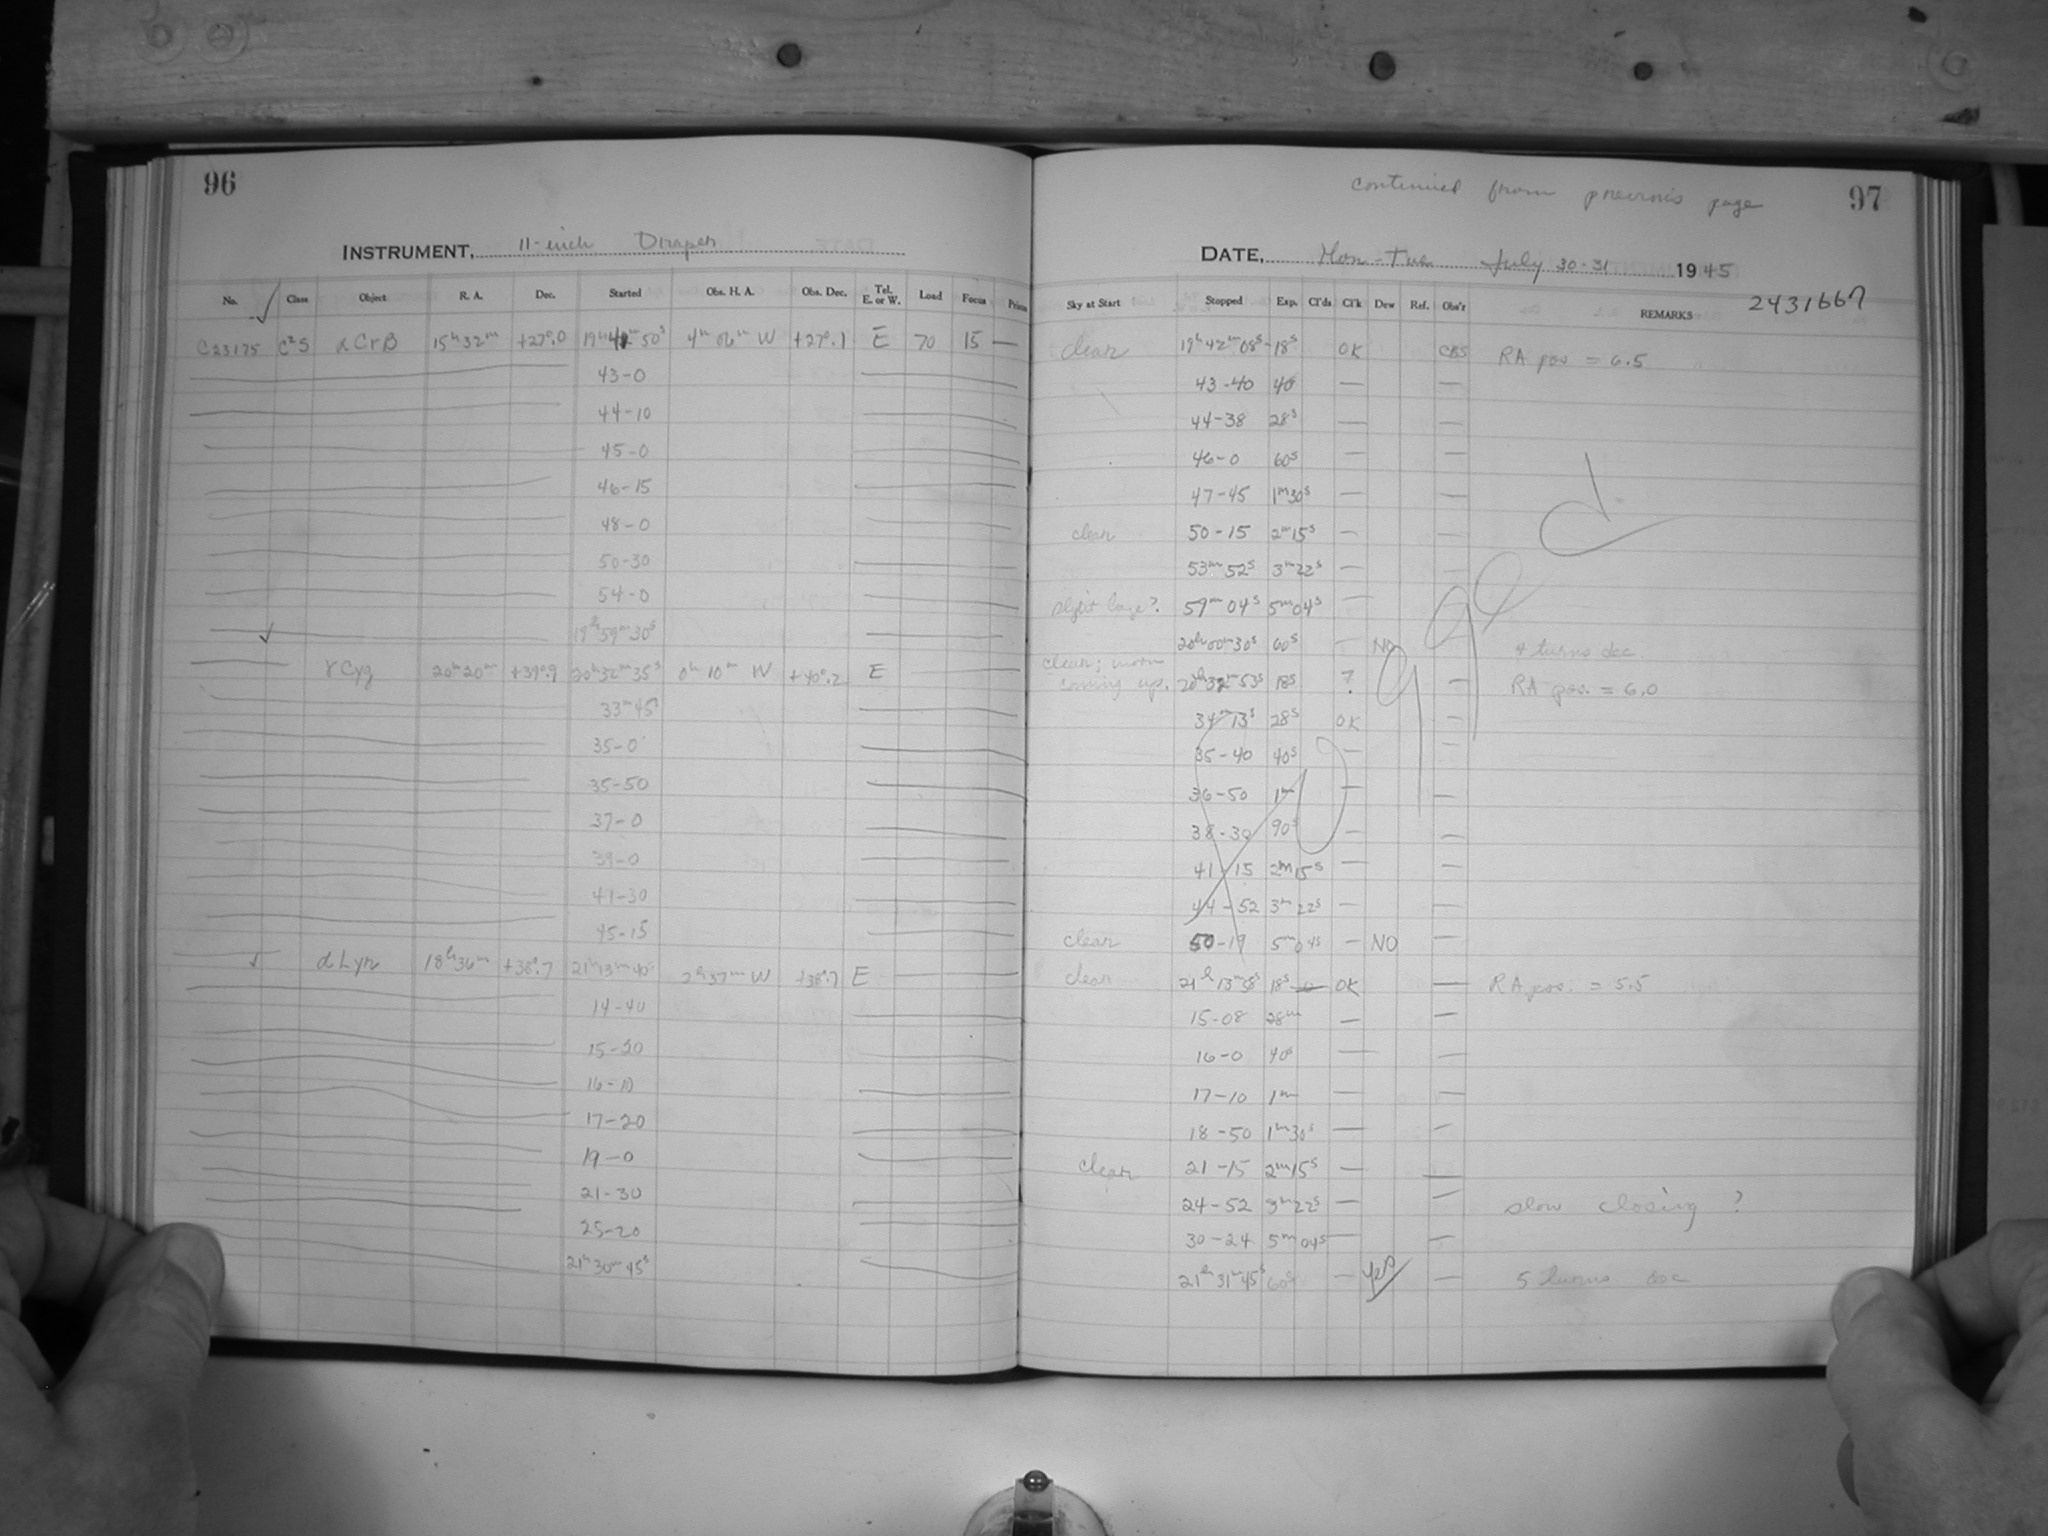 96
INSTRUMENT, 11-inch Draper
No. ✓ Class Object R. A. Dec. Started Obs. H. A. Obs. Dec. Tel. E. or W. Load Focus Prism
C23175 C²S α CrB 15ʰ32ᵐ +27º.0 19ʰ41ᵐ50ˢ 4ʰ06ᵐ W +27º.1 E 70 15 —
43-0
44-10
45-0
46-15
48-0
50-30
54-0
✓ 19ʰ59ᵐ30ˢ
γ Cyg 20ʰ20ᵐ +39º.9 20ʰ32ᵐ35ˢ 0ʰ10ᵐ W +40º.2 E
33ᵐ45ˢ
35-0
35-50
37-0
39-0
41-30
45-15
✓ α Lyr 18ʰ36ᵐ +38º.7 21ʰ13ᵐ40ˢ 2ʰ37ᵐ W +38º.7 E
14-40
15-20
16-10
17-20
19-0
21-30
25-20
21ʰ30ᵐ45ˢ
continued from previous page
97
DATE, Mon-Tue July 30-31 1945
Sky at Start Stopped Exp. Cl'ds Cl'k Dew Ref. Obs'r REMARKS 2431667
clear 19ʰ42ᵐ08ˢ 18ˢ OK CBS RA pos = 6.5
43-40 40ˢ —
44-38 28ˢ —
46-0 60ˢ —
47-45 1ᵐ30ˢ —
clear 50-15 2ᵐ15ˢ —
53ᵐ52ˢ 3ᵐ22ˢ —
slight haze? 59ᵐ04ˢ 5ᵐ04ˢ —
20ʰ00ᵐ30ˢ 60ˢ — NO 4 turns dec.
clear; moon
coming up. 20ʰ32ᵐ53ˢ 18ˢ ? — RA pos. = 6.0
34ᵐ13ˢ 28ˢ OK —
35-40 40ˢ —
36-50 1ᵐ —
38-30 90ˢ —
41-15 2ᵐ15ˢ —
44-52 3ᵐ22ˢ —
clear 50-19 5ᵐ04ˢ — NO —
clear 21ʰ13ᵐ58ˢ 18ˢ OK — RA pos. = 5.5
15-08 28ᵐ —
16-0 40ˢ —
17-10 1ᵐ —
18-50 1ᵐ30ˢ —
clear 21-15 2ᵐ15ˢ —
24-52 3ᵐ22ˢ — slow closing ?
30-24 5ᵐ04ˢ —
21ʰ31ᵐ45ˢ 60ˢ — yes — 5 turns dec